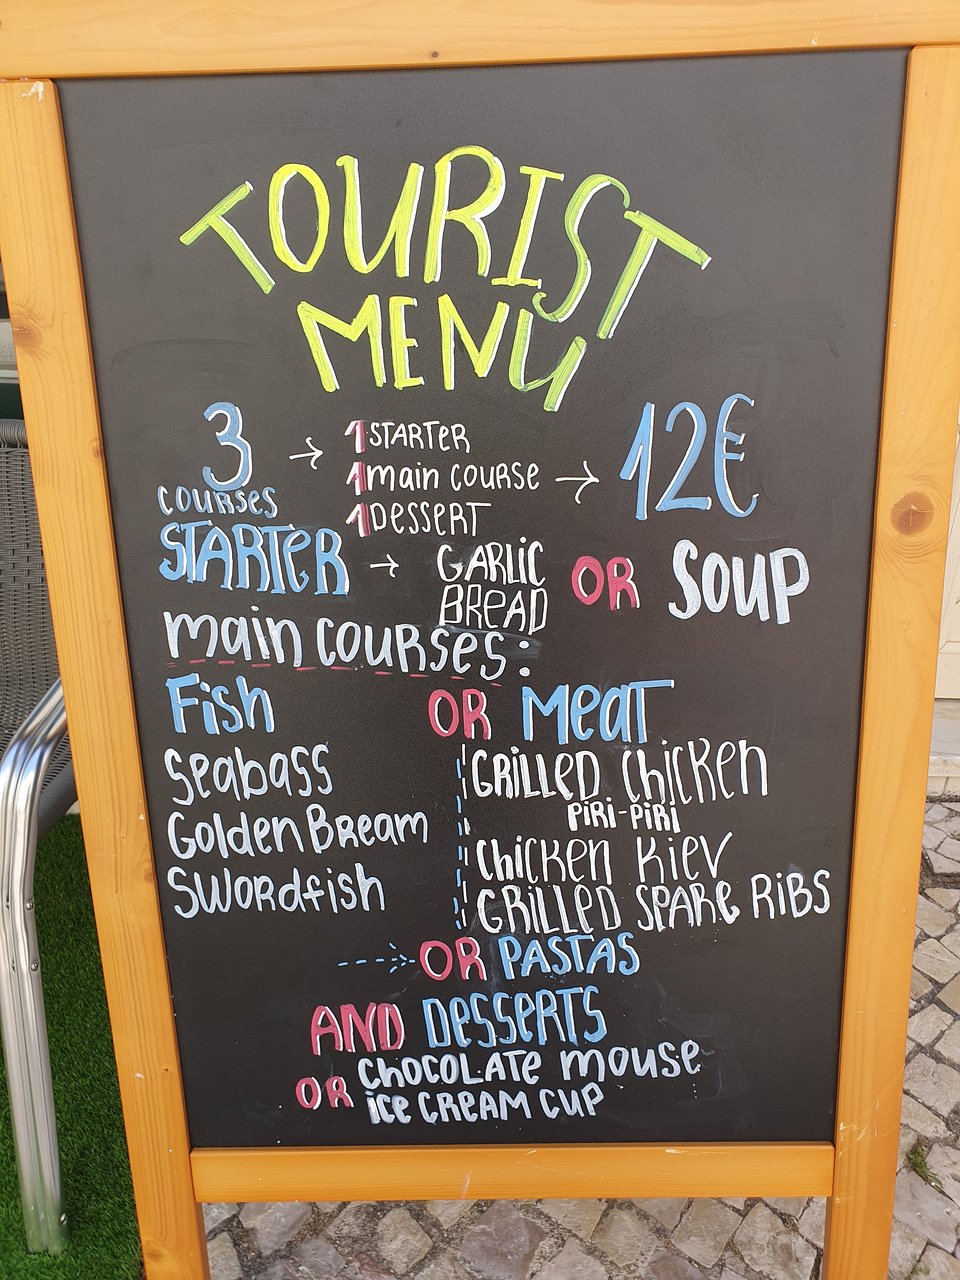 TOURIST
MENU
3 COURSES → 1 STARTER
1 main COURSE → 12€
1 DESSERT
STARTER → GARLIC BREAD OR SOUP
main COURSES:
Fish OR Meat
Seabass
Golden Bream
Swordfish
GRILLED Chicken
PIRI-PIRI
Chicken Kiev
GRILLED SPARE RIBS
OR PASTAS
AND DESSERTS
OR CHOCOLATE mouse
ice CREAM CUP